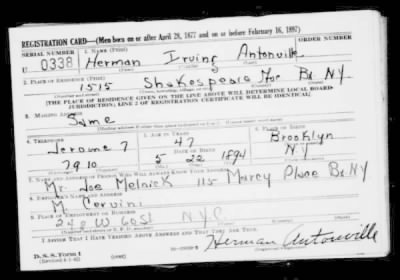 REGISTRATION CARD—(Men born on or after April 28, 1877 and on or before February 16, 1897)
SERIAL NUMBER 1. NAME (Print) ORDER NUMBER
U 0338 Herman Irving Antonville
2. PLACE OF RESIDENCE (Print)
1515 Shakespeare Ave Bx NY
[THE PLACE OF RESIDENCE GIVEN ON THE LINE ABOVE WILL DETERMINE LOCAL BOARD
JURISDICTION; LINE 2 OF REGISTRATION CERTIFICATE WILL BE IDENTICAL]
3. MAILING ADDRESS
Same
4. TELEPHONE 5. AGE IN YEARS 6. PLACE OF BIRTH
Jerome 7 47 Brooklyn
DATE OF BIRTH
7910 5 22 1894 NY
7. NAME AND ADDRESS OF PERSON WHO WILL ALWAYS KNOW YOUR ADDRESS
Mr. Joe Melnick 115 Marcy Place Bx NY
8. EMPLOYER'S NAME AND ADDRESS
M. Cervini
9. PLACE OF EMPLOYMENT OR BUSINESS
W 61st NYC
I AFFIRM THAT I HAVE VERIFIED ABOVE ANSWERS AND THAT THEY ARE TRUE.
D.S.S. Form 1
Herman Antonville